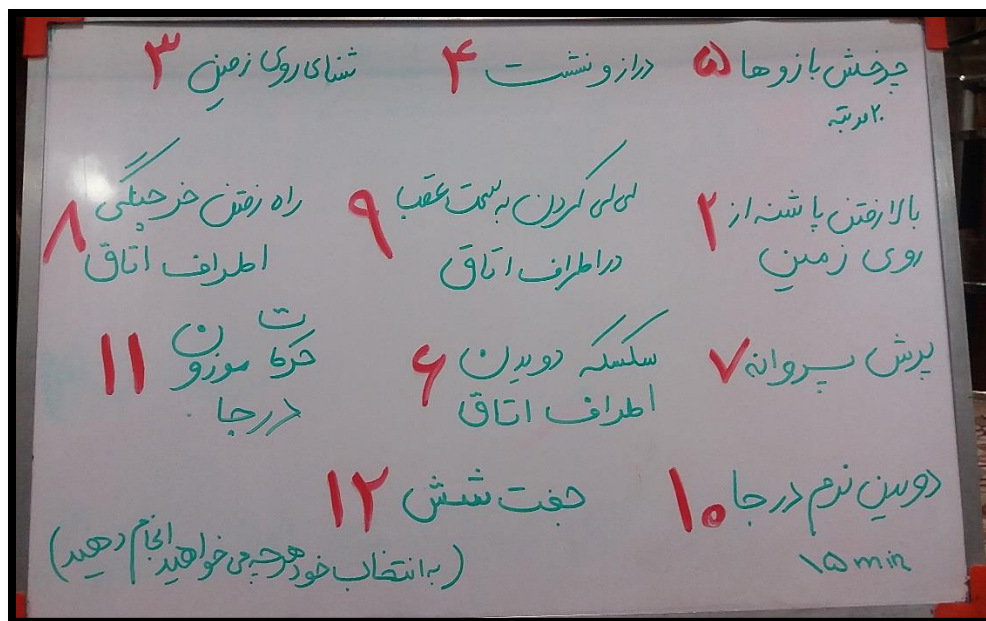 چرخش بازوها ۵
۲۰ مرتبه
دراز و نشست ۴
شنای روی زمین ۳
بالا رفتن پاشنه از ۲
روی زمین
لی لی کردن به سمت عقب ۹
در اطراف اتاق
راه رفتن خرچنگی ۸
اطراف اتاق
پرش پروانه ۷
سکسکه دویدن ۶
اطراف اتاق
حرکات موزون ۱۱
درجا
دویدن نرم درجا ۱۰
۱۵ min
جفت شش ۱۲
(به انتخاب خود هرچه می خواهید انجام دهید)